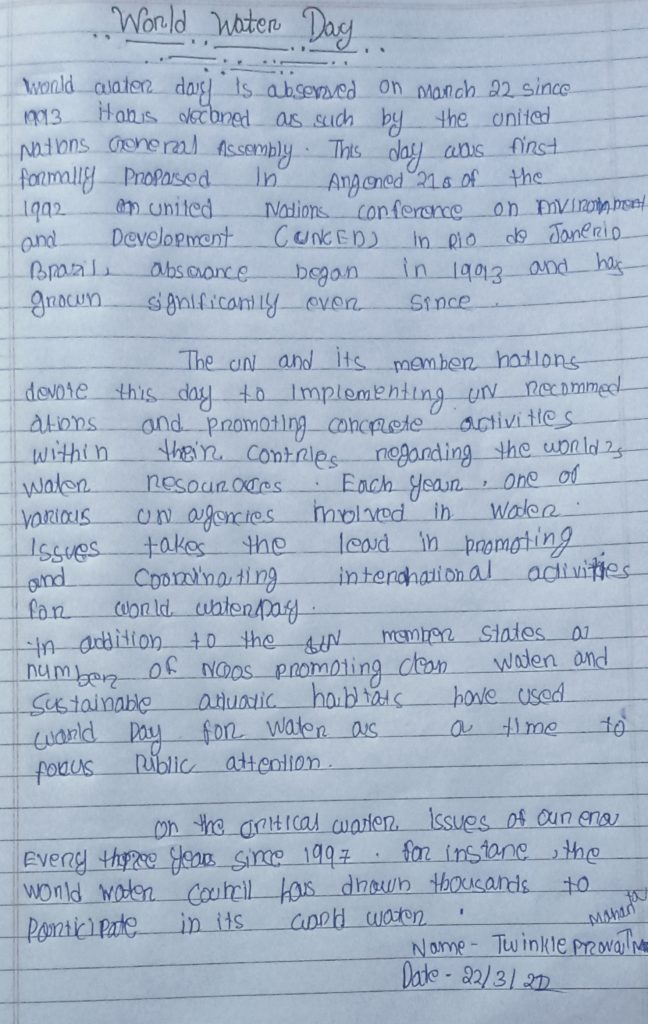 World Water Day
World water day is observed on March 22 since
1993 declared as such by the united
Nations General Assembly. This day was first
formally Proposed In 21 of the
1992 united Nations conference on
and Development (UNCED) In Rio de Janerio
Brazil, began in 19913 and has
grown significantly even since.
The UN and its member nations
devote this day to Implementing UN recommed
ations and promoting concrete activities
within their contries regarding the world's
water . Each year, one of
various UN agencies involved in water.
Issues takes the lead in promoting
and coordinating international activities
for world waterDay.
In addition to the UN member states a
number of NGOs promoting clean water and
sustainable aquatic habitats have used
world Day for water as a time to
focus Public attention.
on the critical water Issues of our era
Every three years since 1997. for instane, the
world water council has drawn thousands to
Participate in its world water.
Mahanta
Name - Twinkle
Date - 22/3/